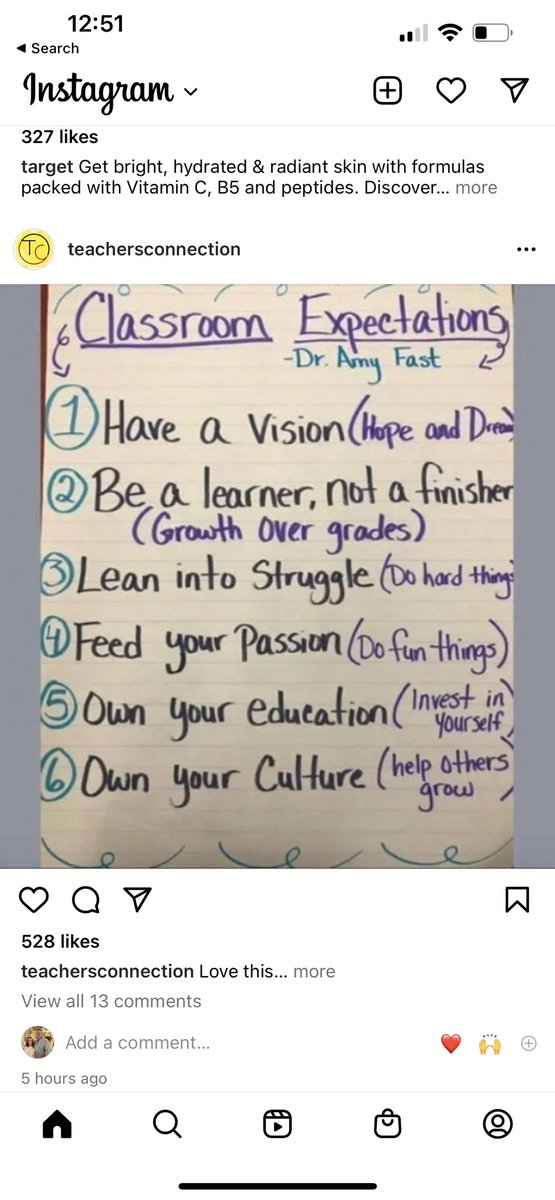 12:51
Search
Instagram
327 likes
target Get bright, hydrated & radiant skin with formulas
packed with Vitamin C, B5 and peptides. Discover... more
TC
teachersconnection
Classroom Expectations
-Dr. Amy Fast
1 Have a Vision (Hope and Dream)
2 Be a learner, not a finisher
(Growth over grades)
3 Lean into Struggle (Do hard things
4 Feed your Passion (Do fun things)
5 Own your education (Invest in
yourself
6 Own your Culture (help others
grow
528 likes
teachersconnection Love this... more
View all 13 comments
Add a comment...
5 hours ago